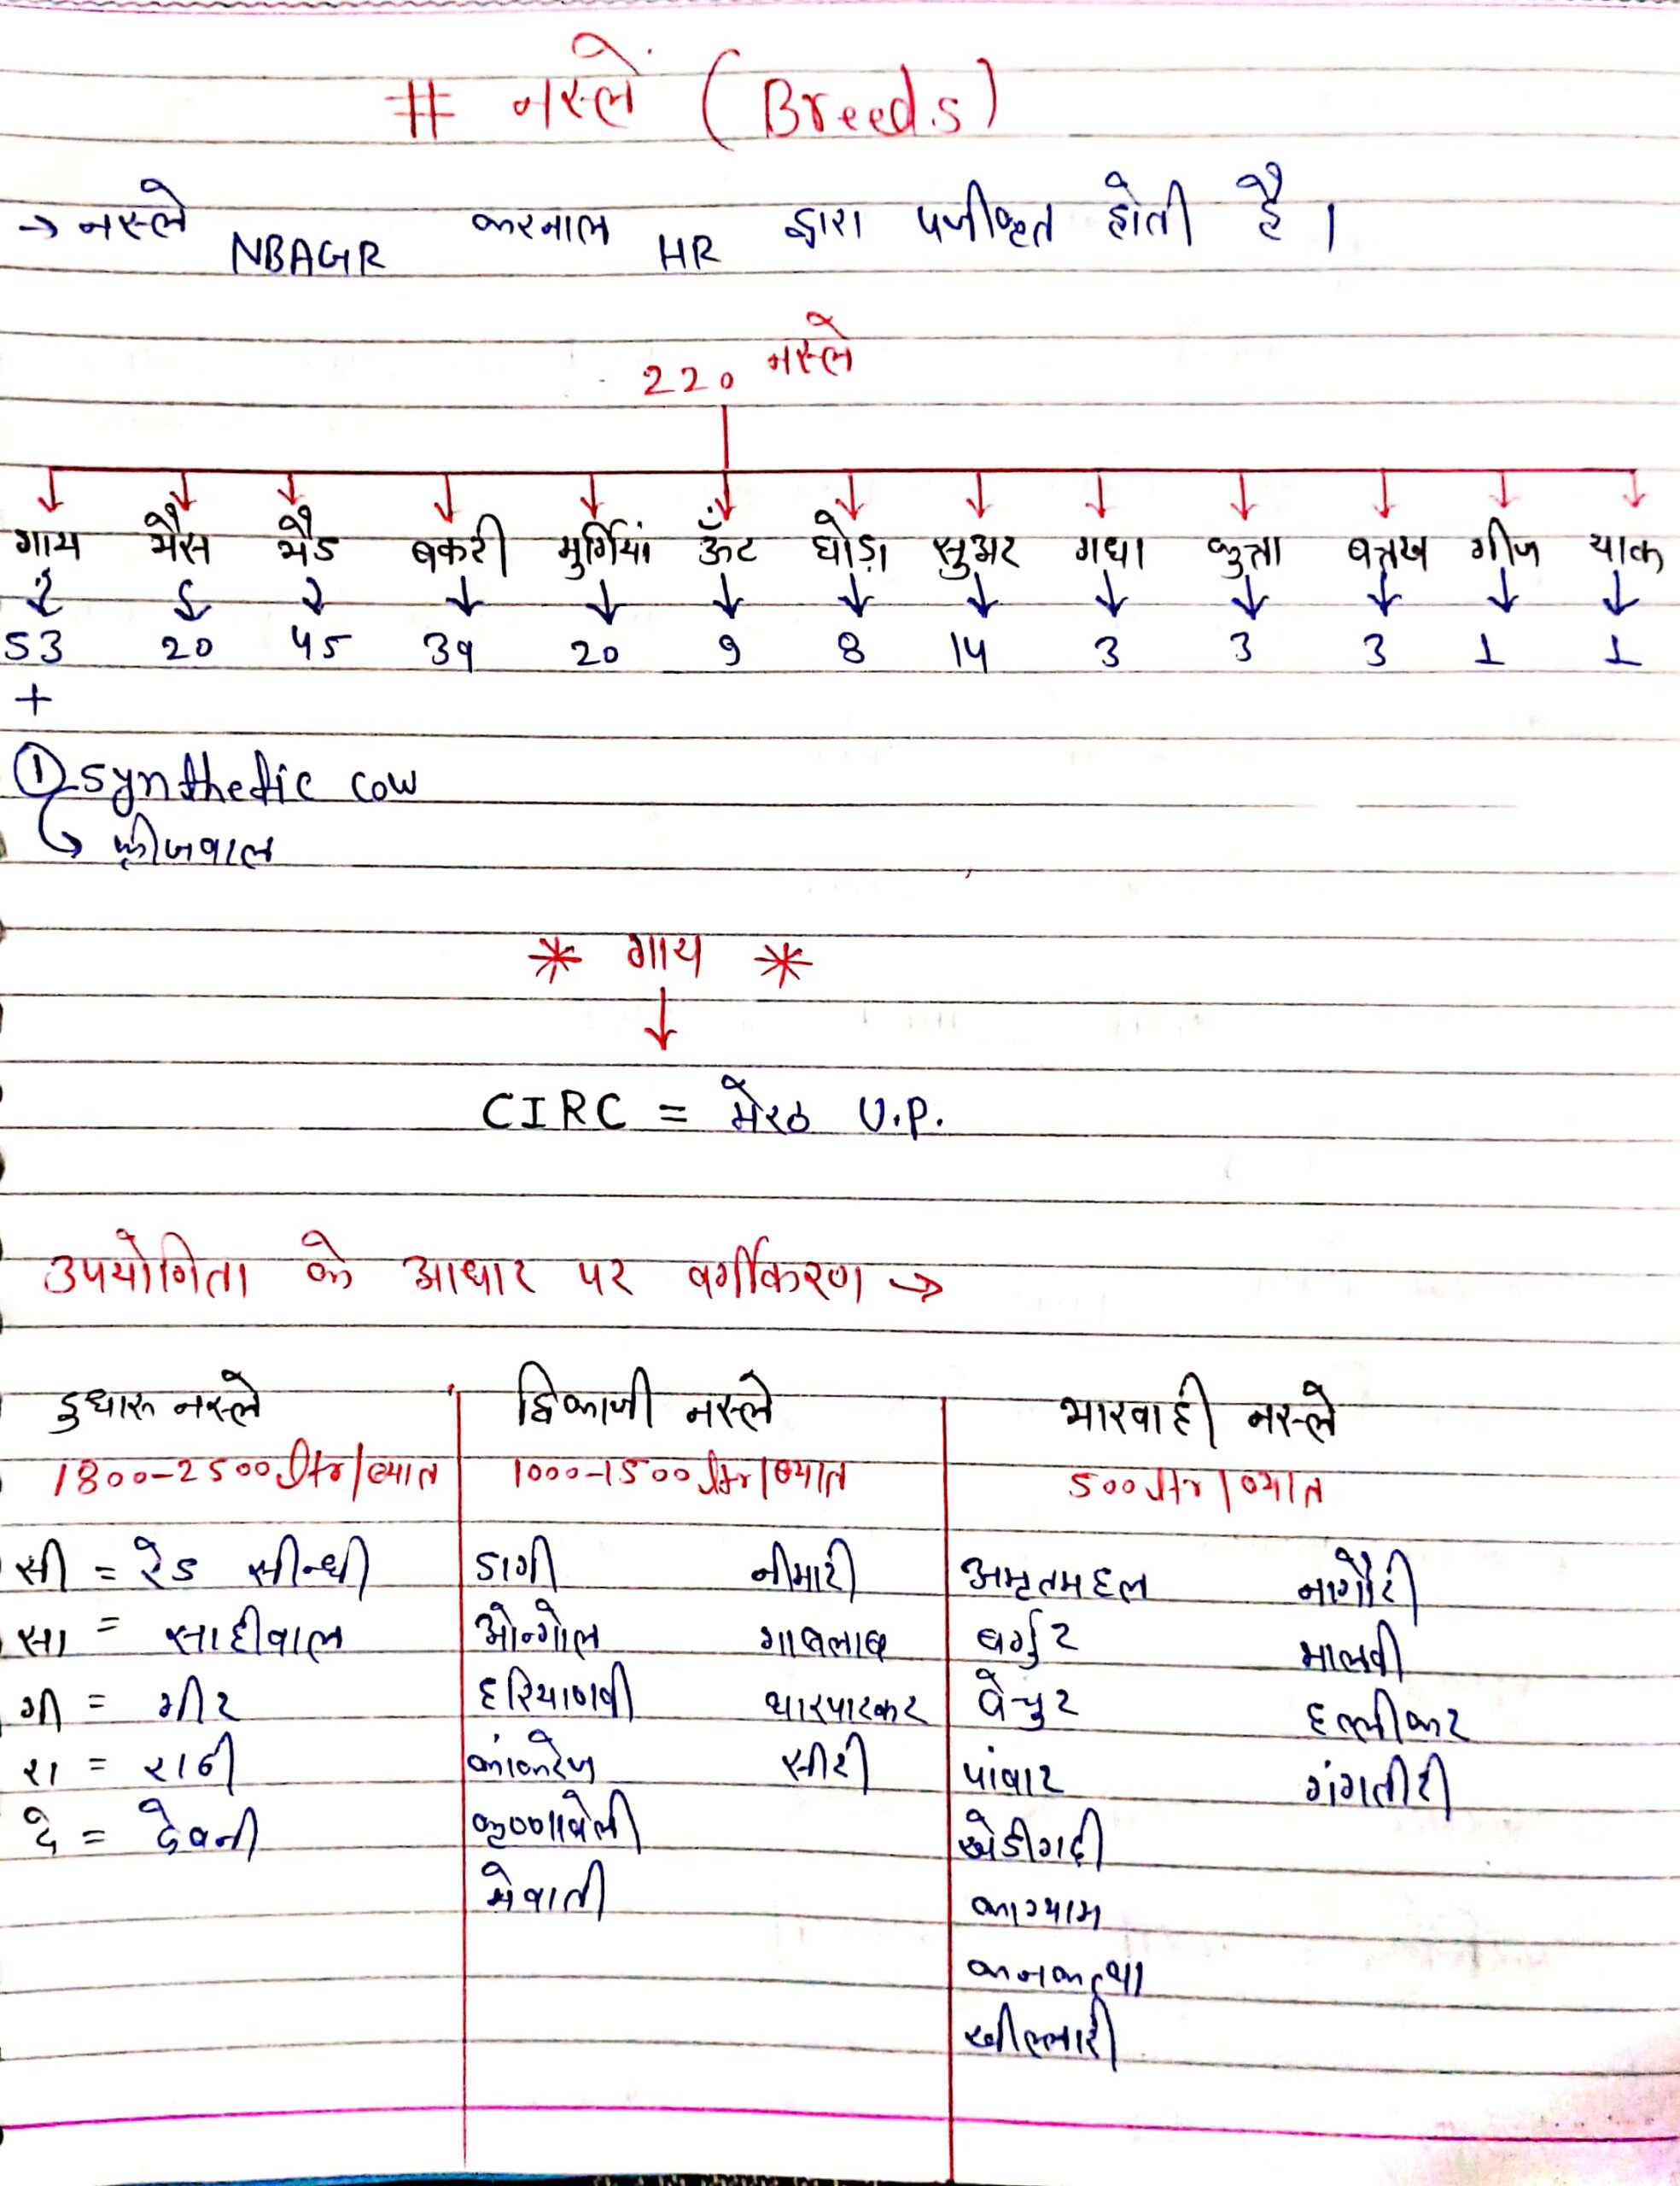 # नस्ले (Breeds)
→ नस्ले NBAGR करनाल HR द्वारा पंजीकृत होती है।
220 नस्ले
गाय भैंस भैड बकरी मुर्गियां ऊँट घोडा सुअर गधा कुत्ता बत्तख गीज याक
53 20 45 39 20 9 8 14 3 3 3 1 1
+
① synthetic cow
फ्रीजवाल
* गाय *
↓
CIRC = मेरठ U.P.
उपयोगिता के आधार पर वर्गीकरण →
दुधारू नस्ले द्विकाजी नस्ले भारवाही नस्ले
1800-2500 ltr/ब्यात 1000-1500 ltr/ब्यात 500 ltr/ब्यात
सी = रेड सीन्धी डागी नीमारी अमृतमहल नागौरी
सा = साहीवाल ओन्गोल गावलाव बर्गुर मालवी
गी = गीर हरियाणवी थारपारकर वेचुर हल्लीकर
रा = राठी कांकरेज सीरी पांवार गंगतीरी
दे = देवनी कृष्णावेली खेडीगढी
मेवाती कांग्याम
खील्लारी